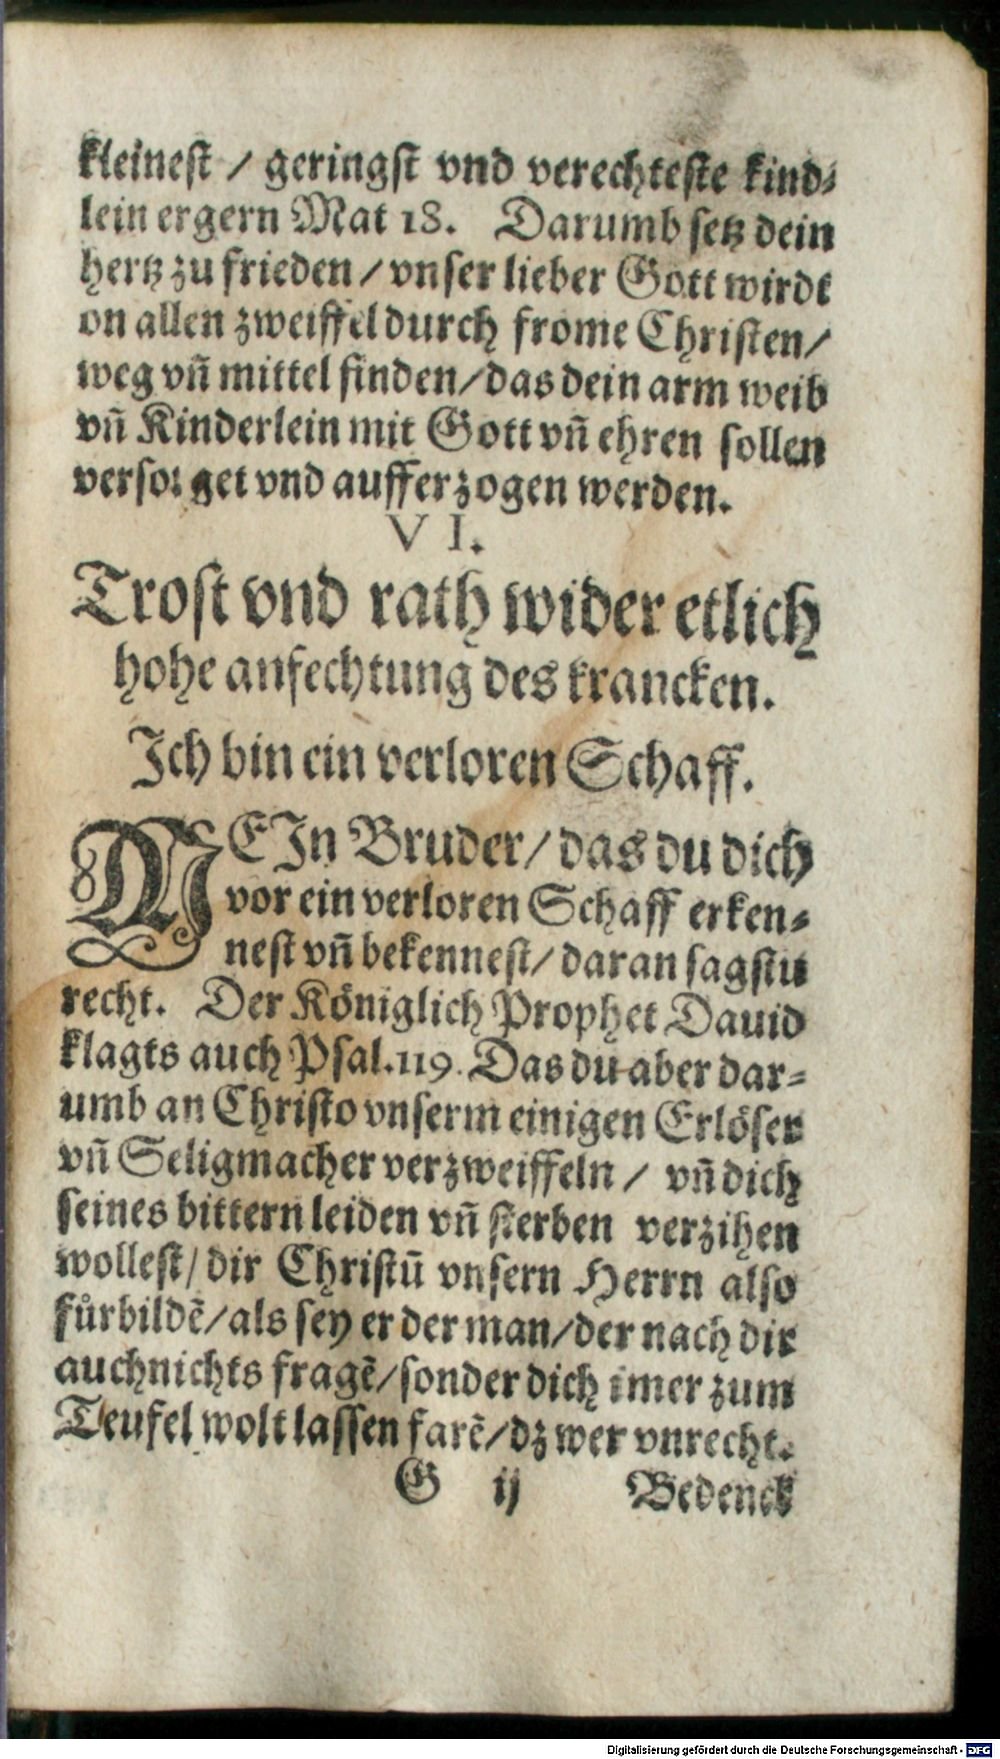 kleinest / geringst vnd verechteste kind⸗
lein ergern Mat 18. Darumb setz dein
hertz zu frieden / vnser lieber Gott wirdt
on allen zweiffel durch frome Christen /
weg vñ mittel finden / das dein arm weib
vñ Kinderlein mit Gott vñ ehren sollen
versorget vnd aufferzogen werden.
VI.
Trost vnd rath wider etlich
hohe anfechtung des krancken.
Ich bin ein verloren Schaff.
MEIn Bruder / das du dich
vor ein verloren Schaff erken⸗
nest vñ bekennest / daran sagstu
recht. Der Königlich Prophet Dauid
klagts auch Psal. 119. Das du aber dar⸗
umb an Christo vnserm einigen Erlöser
vñ Seligmacher verzweiffeln / vñ dich
seines bittern leiden vñ sterben verzihen
wollest / dir Christū vnsern Herrn also
fůrbildē / als sey er der man / der nach dir
auch nichts fragē / sonder dich imer zum
Teufel wolt lassen farē / dz wer vnrecht.
G ij Bedenck
Digitalisierung gefördert durch die Deutsche Forschungsgemeinschaft - DFG